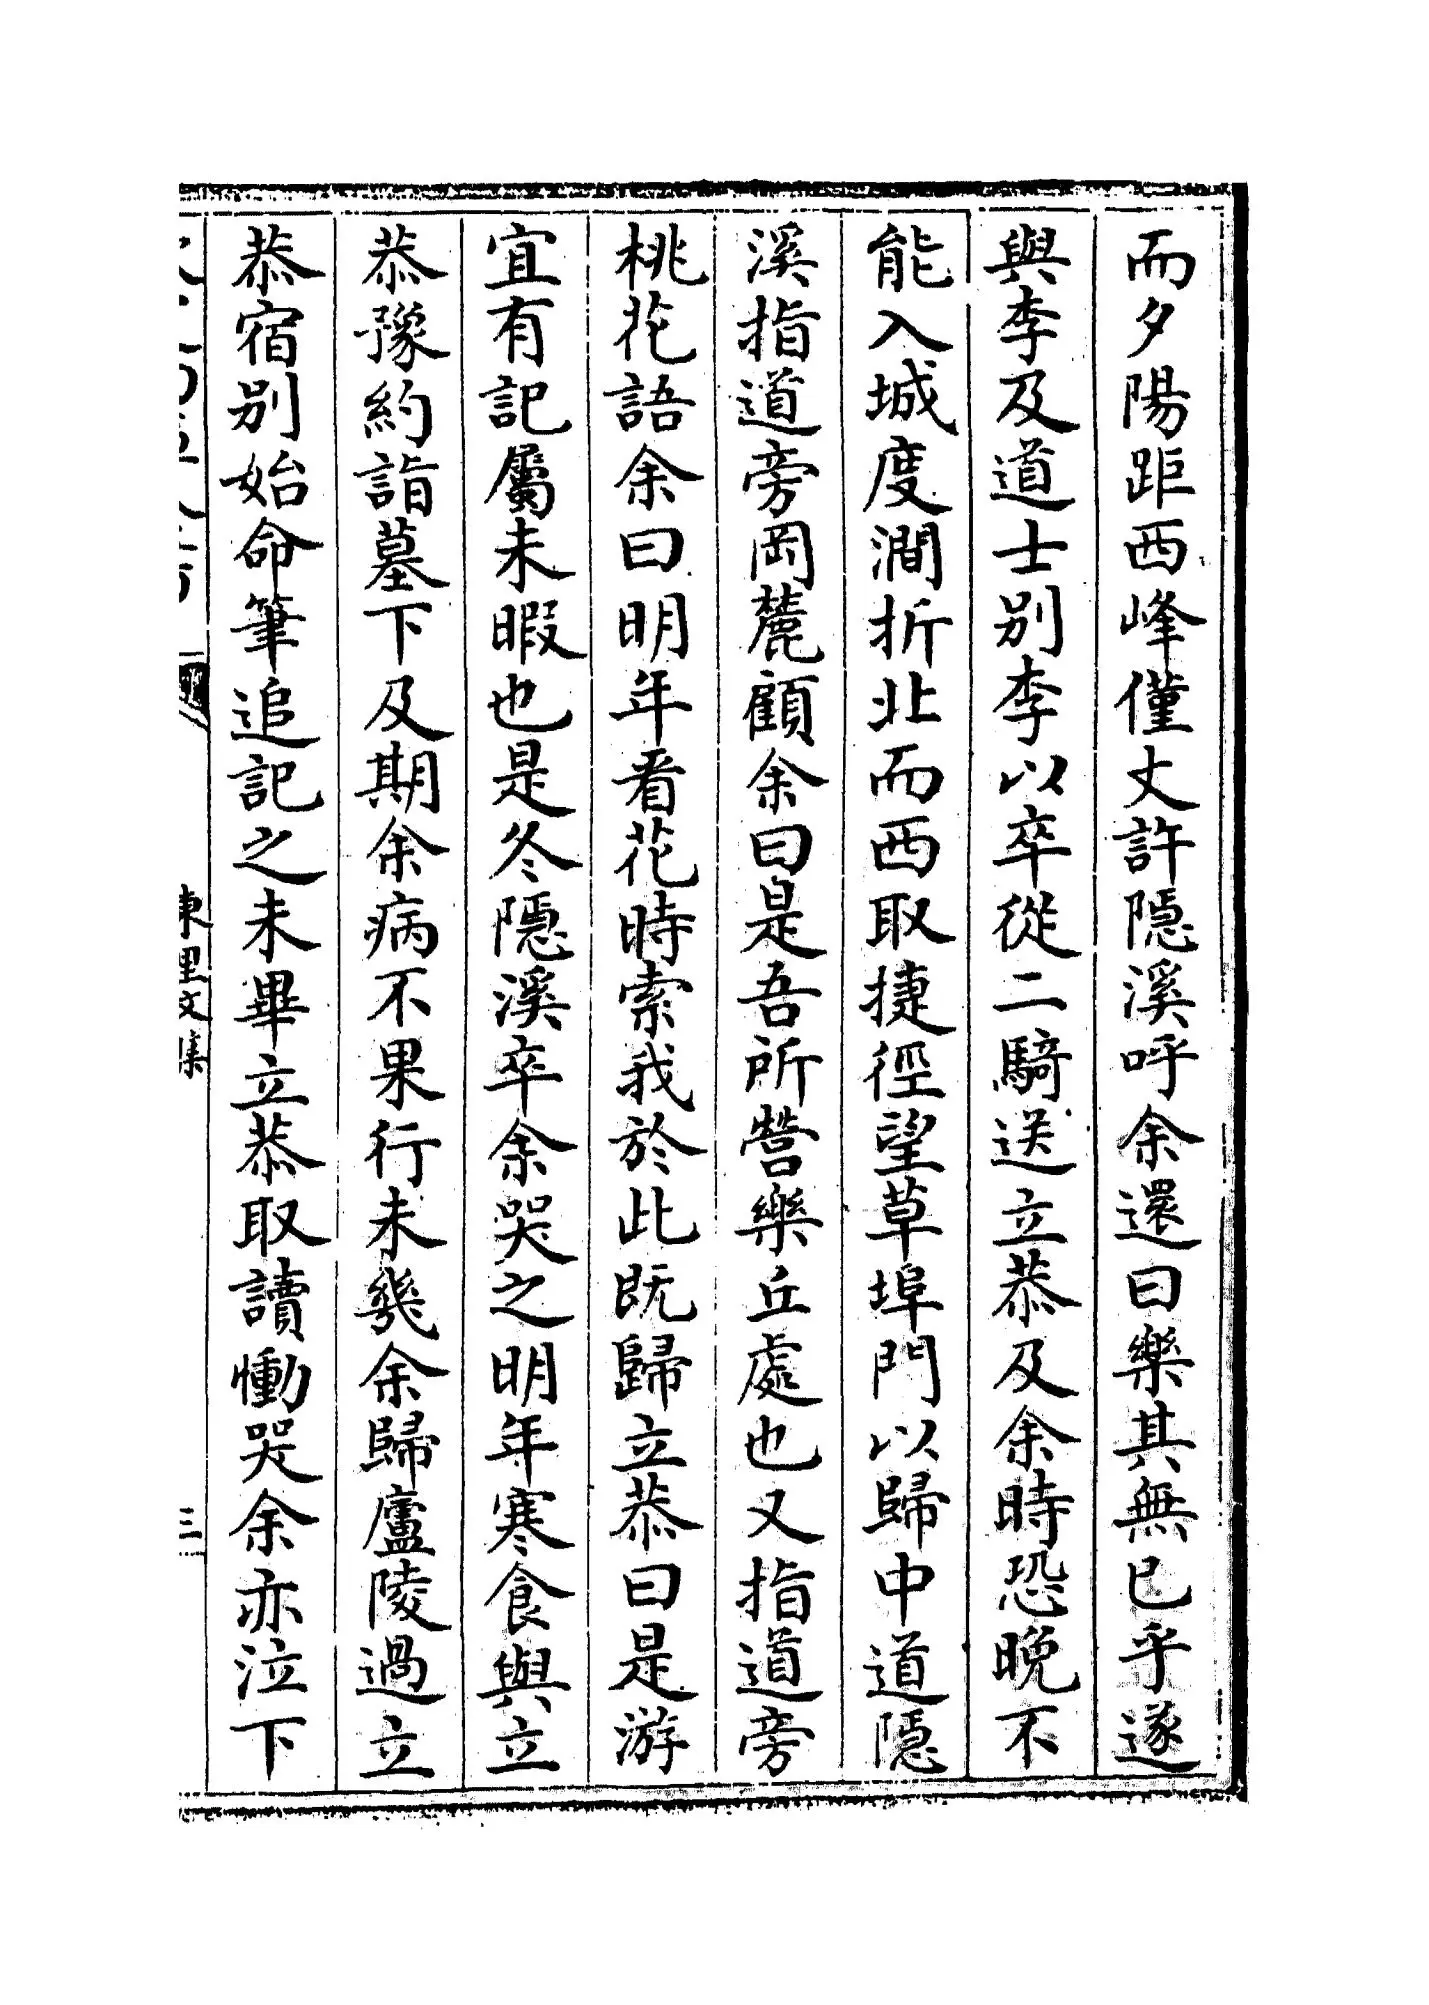 而夕陽距西峰僅丈許隱溪呼余還曰樂其無已乎遂
與李及道士别李以卒從二騎送立恭及余時恐晚不
能入城度澗折北而西取捷徑望草埠門以歸中道隱
溪指道旁岡麓顧余曰是吾所營樂丘處也又指道旁
桃花語余曰明年看花時索我於此既歸立恭曰是游
宜有記屬未暇也是冬隱溪卒余哭之明年寒食與立
恭豫約詣墓下及期余病不果行未幾余歸廬陵過立
恭宿别始命筆追記之未畢立恭取讀慟哭余亦泣下
東里文集
三